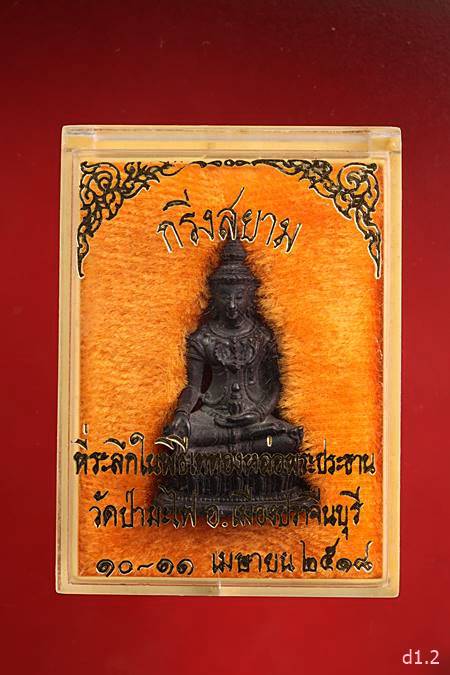 กริ่งสยาม
ที่ระลึกในพิธีเททองหล่อพระประธาน
วัดป่ามะไฟ อ.เมืองปราจีนบุรี
๑๐-๑๑ เมษายน ๒๕๑๘
d1.2